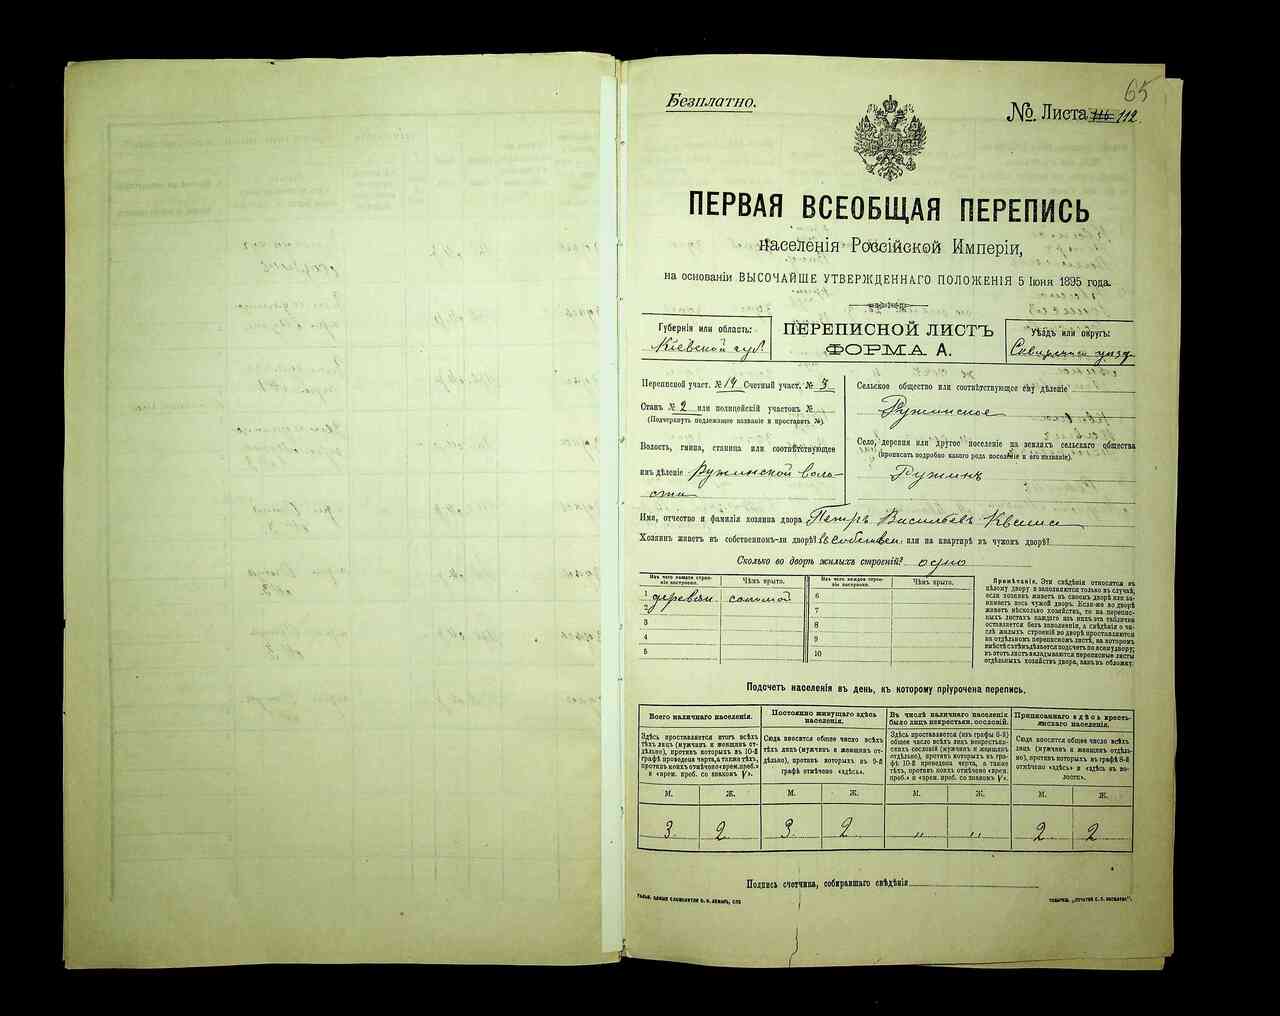 65
Безплатно.
№. Листа 116 112.
ПЕРВАЯ ВСЕОБЩАЯ ПЕРЕПИСЬ
населенія Россійской Имперіи,
на основаніи ВЫСОЧАЙШЕ УТВЕРЖДЕННАГО ПОЛОЖЕНІЯ 5 Іюня 1895 года.
Губернія или область:
Кіевской губ.
ПЕРЕПИСНОЙ ЛИСТЪ
ФОРМА А.
Уѣздъ или округъ:
Сквирскій уѣзд
Переписной участ. № 14 Счетный участ. № 3
Станъ № 2 или полицейскій участокъ №
(Подчеркнуть подлежащее названіе и проставить №).
Волость, гмина, станица или соотвѣтствующее
имъ дѣленіе Ружинской воло-
сти
Сельское общество или соотвѣтствующее ему дѣленіе
Ружинское
Село, деревня или другое поселеніе на земляхъ сельскаго общества
(прописать подробно какого рода поселеніе и его названіе).
Ружинъ
Имя, отчество и фамилія хозяина двора Петръ Васильевъ Кваша
Хозяинъ живетъ въ собственномъ-ли дворѣ? въ собствен. или на квартирѣ въ чужомъ дворѣ?
Сколько во дворѣ жилыхъ строеній? одно
Изъ чего каждое строеніе построено.
Чѣмъ крыто.
Изъ чего каждое строеніе построено.
Чѣмъ крыто.
1 деревян. соломой
2
3
4
5
6
7
8
9
10
Примѣчаніе. Эти свѣдѣнія относятся къ
цѣлому двору и заполняются только въ случаѣ,
если хозяинъ живетъ въ своемъ дворѣ или занимаетъ
весь чужой дворъ. Если-же во дворѣ
живетъ нѣсколько хозяйствъ, то на переписныхъ
листахъ каждаго изъ нихъ эта табличка
оставляется безъ заполненія, а свѣдѣнія о числѣ
жилыхъ строеній во дворѣ проставляются
на отдѣльномъ переписномъ листѣ, на которомъ
вмѣстѣ съ тѣмъ дѣлается подсчетъ по всему двору;
въ этотъ листъ вкладываются переписные листы
отдѣльныхъ хозяйствъ двора, какъ въ обложку.
Подсчетъ населенія въ день, къ которому пріурочена перепись.
Всего наличнаго населенія.
Постоянно живущаго здѣсь населенія.
Въ числѣ наличнаго населенія было лицъ некрестьян. сословій.
Приписаннаго здѣсь крестьянскаго населенія.
Здѣсь проставляется итогъ всѣхъ
тѣхъ лицъ (мужчинъ и женщинъ отдѣльно),
противъ которыхъ въ 10-й
графѣ проведена черта, а также тѣхъ,
противъ коихъ отмѣчено «врем. преб.»
и «врем. преб. со знакомъ V».
Сюда вносится общее число всѣхъ
тѣхъ лицъ (мужчинъ и женщинъ отдѣльно),
противъ которыхъ въ 9-й
графѣ отмѣчено «здѣсь».
Здѣсь проставляется (изъ графы 6-й)
общее число всѣхъ лицъ некрестьянскихъ
сословій (мужчинъ и женщинъ
отдѣльно), противъ которыхъ въ графѣ
10-й проведена черта, а также
тѣхъ, противъ коихъ отмѣчено «врем.
преб.» и «врем. преб. со знакомъ V».
Сюда вносится общее число всѣхъ
лицъ (мужчинъ и женщинъ отдѣльно),
противъ которыхъ въ графѣ 8-й
отмѣчено «здѣсь» и «здѣсь въ волости».
М. Ж. М. Ж. М. Ж. М. Ж.
3 2 3 2 „ „ 2 2
Подпись счетчика, собиравшаго свѣдѣнія